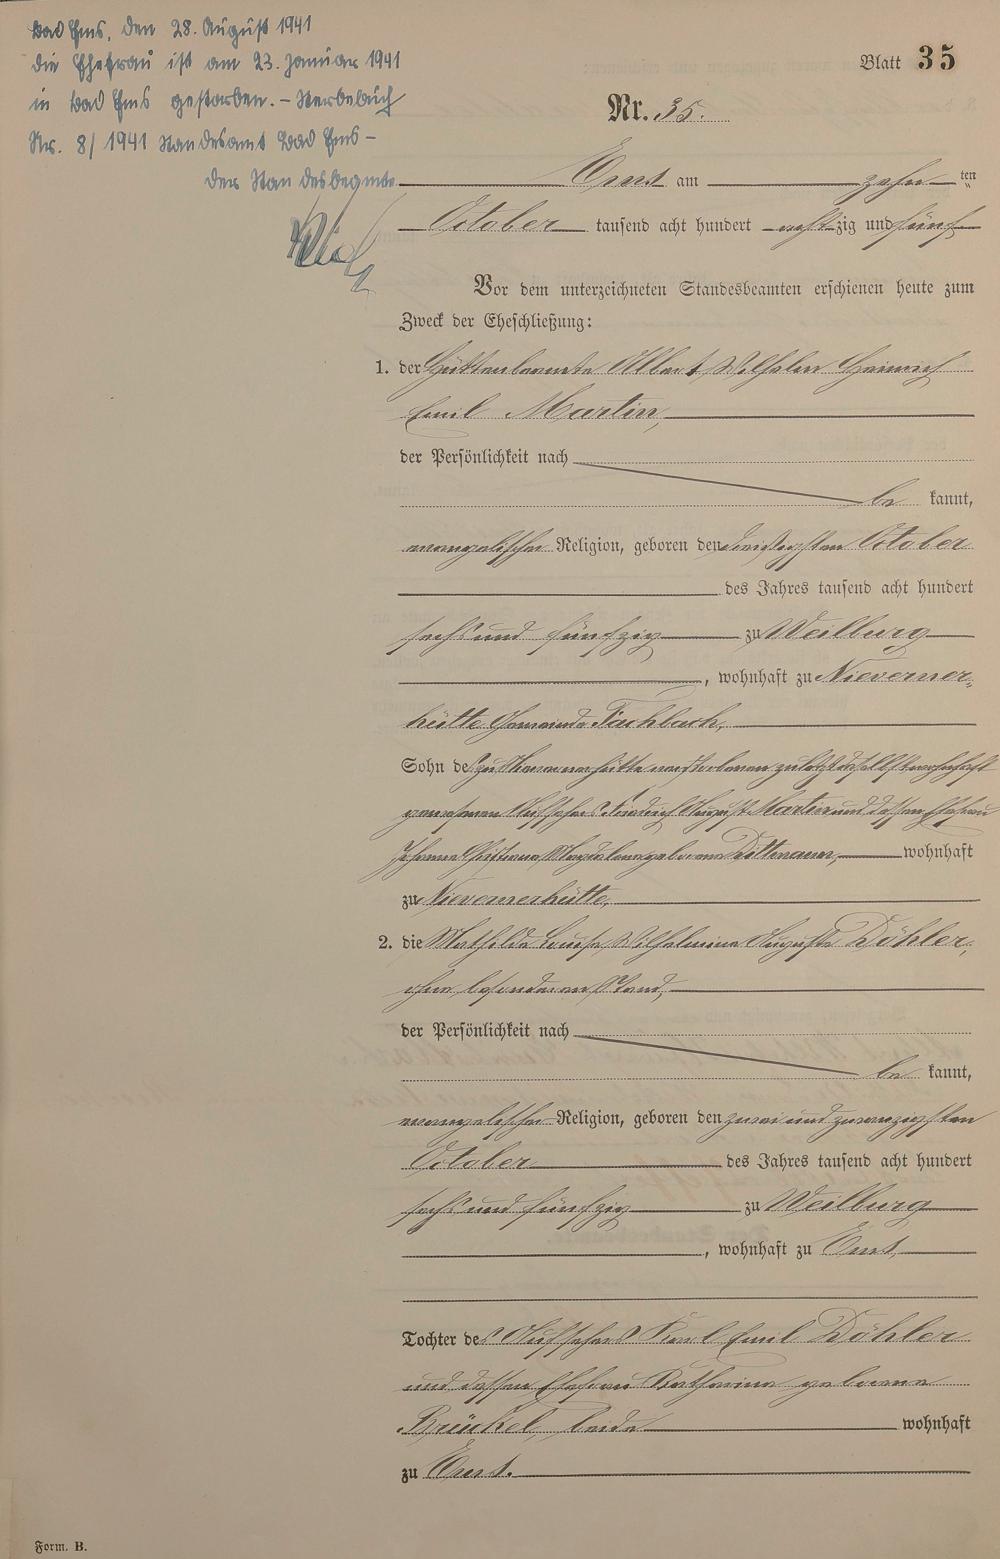 Bad Ems, den 28. August 1941
die Ehefrau ist am 23. Januar 1941
in Bad Ems gestorben. – Sterbebuch
Nr. 8/1941 Standesamt Bad Ems –
der Standesbeamte
Blatt 35
Nr. 35.
Ems am zehnten
October tausend acht hundert achtzig und fünf
Vor dem unterzeichneten Standesbeamten erschienen heute zum
Zweck der Eheschließung:
1. der Hüttenbeamte Albert Wilhelm Heinrich
Emil Martin,
der Persönlichkeit nach
be kannt,
evangelischer Religion, geboren den dreißigsten October
des Jahres tausend acht hundert
sechs und fünfzig zu Weilburg
, wohnhaft zu Nieverner-
hütte Gemeinde Fachbach,
Sohn des zu Nievernerhütte verstorbenen zuletzt daselbst wohnhaft
gewesenen Aufsehers Friedrich August Martin und dessen Ehefrau
Johanne Christiane Magdalene geborene Dittmann, wohnhaft
zu Nievernerhütte,
2. die Mathilde Louise Wilhelmine Auguste Döhler,
ohne besonderen Stand,
der Persönlichkeit nach
be kannt,
evangelischer Religion, geboren den zwei und zwanzigsten
October des Jahres tausend acht hundert
sechs und fünfzig zu Weilburg
, wohnhaft zu Ems,
Tochter des Aufsehers Karl Emil Döhler
und dessen Ehefrau Katharine geborene
Brückel, beide wohnhaft
zu Ems.
Form. B.